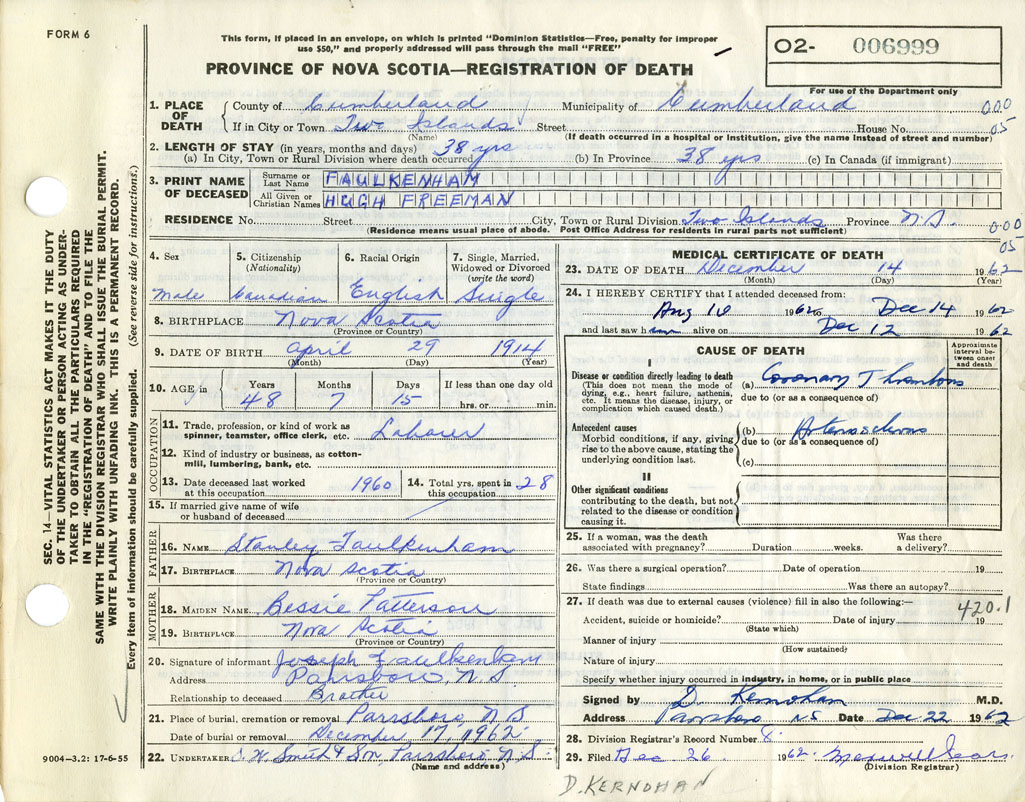 FORM 6
This form, if placed in an envelope, on which is printed "Dominion Statistics—Free, penalty for improper
use $50," and properly addressed will pass through the mail "FREE"
O2- 006999
PROVINCE OF NOVA SCOTIA—REGISTRATION OF DEATH
For use of the Department only
1. PLACE OF DEATH County of Cumberland Municipality of Cumberland 000
If in City or Town Two Islands Street House No. 05
(Name) (If death occurred in a hospital or institution, give the name instead of street and number)
2. LENGTH OF STAY (in years, months and days)
(a) In City, Town or Rural Division where death occurred 38 yrs (b) In Province 38 yrs (c) In Canada (if immigrant)
3. PRINT NAME OF DECEASED Surname or Last Name FAULKENHAM
All Given or Christian Names HUGH FREEMAN
RESIDENCE No. Street City, Town or Rural Division Two Islands Province N.S. 000
(Residence means usual place of abode. Post Office Address for residents in rural parts not sufficient) 05
4. Sex Male
5. Citizenship (Nationality) Canadian
6. Racial Origin English
7. Single, Married, Widowed or Divorced (write the word) Single
8. BIRTHPLACE Nova Scotia
(Province or Country)
9. DATE OF BIRTH April 29 1914
(Month) (Day) (Year)
10. AGE in Years Months Days If less than one day old
48 7 15 hrs. or min.
OCCUPATION
11. Trade, profession, or kind of work as
spinner, teamster, office clerk, etc. Laborer
12. Kind of industry or business, as cotton-
mill, lumbering, bank, etc.
13. Date deceased last worked at this occupation 1960 14. Total yrs. spent in this occupation 28
15. If married give name of wife
or husband of deceased
FATHER
16. NAME Stanley Faulkenham
17. BIRTHPLACE Nova Scotia
(Province or Country)
MOTHER
18. MAIDEN NAME Bessie Patterson
19. BIRTHPLACE Nova Scotia
(Province or Country)
20. Signature of informant Joseph Faulkenham
Address Parrsboro, N.S.
Relationship to deceased Brother
21. Place of burial, cremation or removal Parrsboro, N.S
Date of burial or removal December 17, 1962
22. UNDERTAKER W. Smith & Son, Parrsboro, N.S
(Name and address)
MEDICAL CERTIFICATE OF DEATH
23. DATE OF DEATH December 14 1962
(Month) (Day) (Year)
24. I HEREBY CERTIFY that I attended deceased from:
Aug 10 1962 to Dec 14 1962
and last saw him alive on Dec 12 1962
CAUSE OF DEATH
Approximate interval between onset and death
I
Disease or condition directly leading to death
(This does not mean the mode of
dying, e.g., heart failure, asthenia,
etc. It means the disease, injury, or
complication which caused death.)
(a) Coronary Thrombosis
due to (or as a consequence of)
Antecedent causes
Morbid conditions, if any, giving
rise to the above cause, stating the
underlying condition last.
(b) Arteriosclerosis
due to (or as a consequence of)
(c)
II
Other significant conditions
contributing to the death, but not
related to the disease or condition
causing it.
25. If a woman, was the death Was there
associated with pregnancy? Duration weeks. a delivery?
26. Was there a surgical operation? Date of operation 19
State findings Was there an autopsy?
27. If death was due to external causes (violence) fill in also the following:— 420.1
Accident, suicide or homicide? Date of injury 19
(State which)
Manner of injury
(How sustained)
Nature of injury
Specify whether injury occurred in industry, in home, or in public place
Signed by D. Kernohan M.D.
Address Parrsboro NS Date Dec 22 1962
28. Division Registrar's Record Number 8
29. Filed Dec 26 1962 Maxwell Sears
(Division Registrar)
D. KERNOHAN
SEC. 14—VITAL STATISTICS ACT MAKES IT THE DUTY
OF THE UNDERTAKER OR PERSON ACTING AS UNDER-
TAKER TO OBTAIN ALL THE PARTICULARS REQUIRED
IN THE "REGISTRATION OF DEATH" AND TO FILE THE
SAME WITH THE DIVISION REGISTRAR WHO SHALL ISSUE THE BURIAL PERMIT.
WRITE PLAINLY WITH UNFADING INK. THIS IS A PERMANENT RECORD.
Every item of information should be carefully supplied. (See reverse side for instructions.)
9004-3.2: 17-6-55